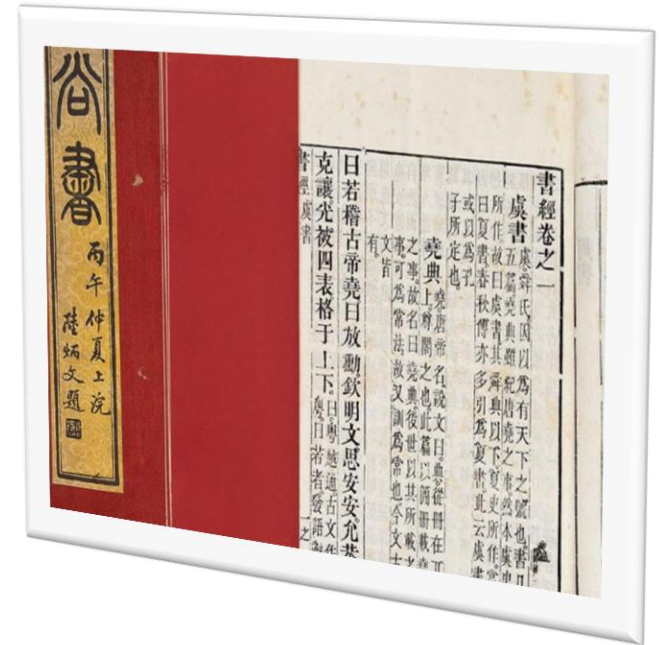 尚書
丙午仲夏上浣
陸炳文題
書經卷之一
虞書
虞舜氏因以爲有天下之號也書凡
五篇堯典雖紀唐堯之事然本虞史
所作故曰虞書其舜典以下夏史所作當
曰夏書春秋傳亦多引爲夏書此云虞書
或以爲孔
子所定也
堯典
堯唐帝名說文曰典從冊在丌
上尊閣之也此篇以簡冊載堯
之事故名曰堯典後世以其所載之
事可爲常法故又訓爲常也今文古
文皆
有
曰若稽古帝堯曰放勳欽明文思安安允恭
克讓光被四表格于上下
曰粵越通古文作
粵曰若者發語
書經虞書